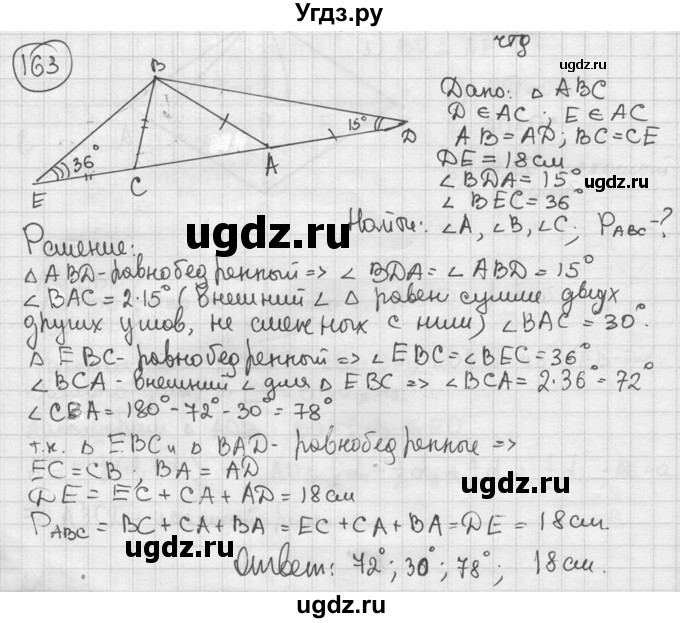 Угдз.ру
163
чтд
B
36°
15°
E
C
A
D
ugdz.ru
Дано: △ ABC
D ∈ AC ; E ∈ AC
AB = AD; BC = CE
DE = 18 см
∠ BDA = 15°
∠ BEC = 36°
ugdz.ru
Найти: ∠A, ∠B, ∠C; P ABC - ?
ugdz.ru
ugdz.ru
Решение:
△ ABD - равнобедренный => ∠ BDA = ∠ ABD = 15°
∠ BAC = 2·15° (внешний ∠ △ равен сумме двух
других углов, не смежных с ним) ∠ BAC = 30°.
△ EBC - равнобедренный => ∠ EBC = ∠ BEC = 36°
∠ BCA - внешний ∠ для △ EBC => ∠ BCA = 2·36° = 72°
∠ CBA = 180° - 72° - 30° = 78°
т.к. △ EBC и △ BAD - равнобедренные =>
EC = CB, BA = AD
ugdz.ru
DE = EC + CA + AD = 18 см
P ABC = BC + CA + BA = EC + CA + BA = DE = 18 см.
ugdz.ru
ugdz.ru
Ответ: 72°; 30°; 78°; 18 см.
ugdz.ru